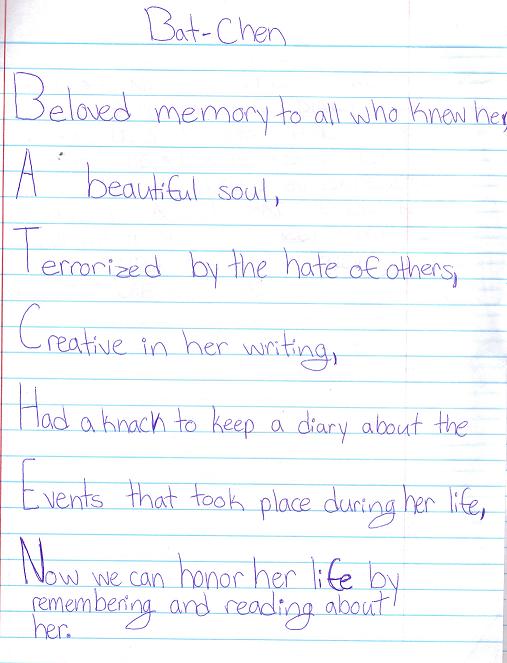 Bat-Chen
Beloved memory to all who knew her,
A beautiful soul,
Terrorized by the hate of others,
Creative in her writing,
Had a knack to keep a diary about the
Events that took place during her life,
Now we can honor her life by
remembering and reading about
her.